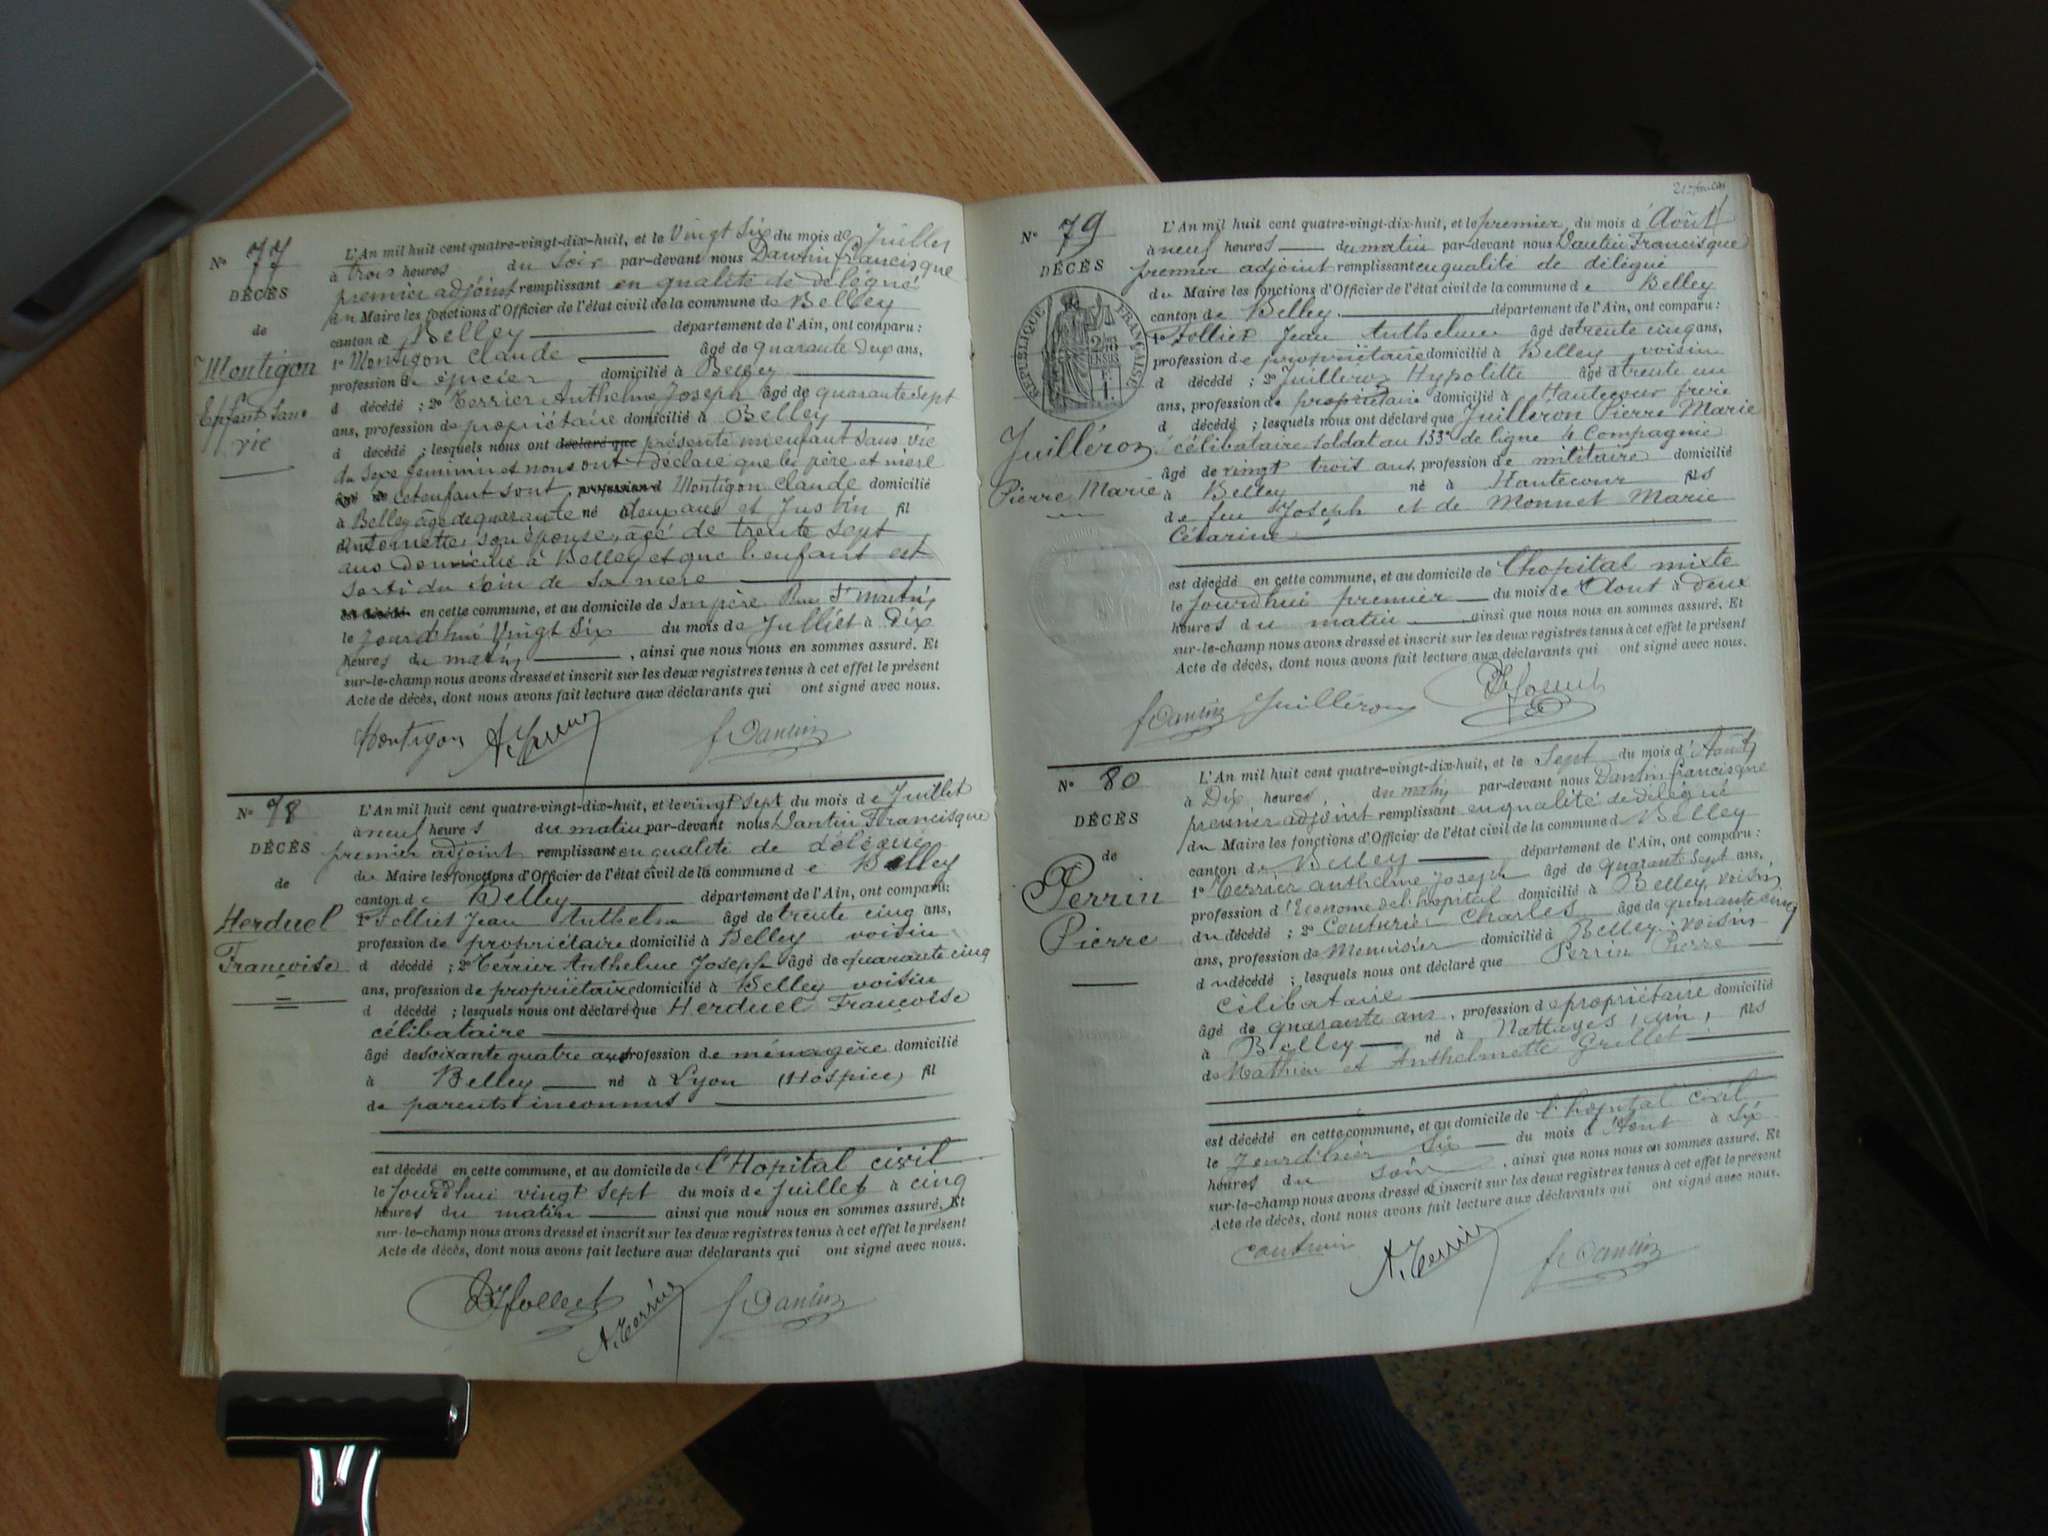 N° 77
DÉCÈS
de
Montigon
Enfant sans
vie
L'An mil huit cent quatre-vingt-dix-huit, et le Vingt Six du mois de Juillet
à trois heures du Soir par-devant nous Dantin francisque
premier adjoint remplissant en qualité de délégué
du Maire les fonctions d'Officier de l'état civil de la commune de Belley
canton de Belley département de l'Ain, ont comparu :
1° Montigon Claude âgé de quarante deux ans,
profession de épicier domicilié à Belley
d décédé ; 2° Terrier Anthelme Joseph âgé de quarante sept
ans, profession de propriétaire domicilié à Belley
d décédé ; lesquels nous ont déclaré que présenté un enfant sans vie
du sexe féminin et nous ont déclaré que les père et mère
âgé de cet enfant sont profession d Montigon Claude domicilié
à Belley âgé de quarante né deux ans et Justin fil
Antoinette, son épouse, âgé de trente sept
ans domicilié à Belley et que l'enfant est
sorti du sein de sa mère
est décédé en cette commune, et au domicile de son père Rue St Martin
le jourd'hui Vingt Six du mois de Julliet à Dix
heures du matin , ainsi que nous nous en sommes assuré. Et
sur-le-champ nous avons dressé et inscrit sur les deux registres tenus à cet effet le présent
Acte de décès, dont nous avons fait lecture aux déclarants qui ont signé avec nous.
Montigon A. Terrier f Dantin
N° 78
DÉCÈS
de
Herduel
Françoise
L'An mil huit cent quatre-vingt-dix-huit, et le vingt sept du mois de Juillet
à neuf heures du matin par-devant nous Dantin Francisque
premier adjoint remplissant en qualité de délégué
du Maire les fonctions d'Officier de l'état civil de la commune d e Belley
canton de Belley département de l'Ain, ont comparu :
1° Folliet Jean Anthelm âgé de trente cinq ans,
profession de propriétaire domicilié à Belley voisin
d décédé ; 2° Terrier Anthelme Joseph âgé de quarante cinq
ans, profession de propriétaire domicilié à Belley voisin
d décédé ; lesquels nous ont déclaré que Herduel Françoise
célibataire
âgé de soixante quatre ans profession de ménagère domicilié
à Belley né à Lyon (Hospice) fil
de parents inconnus
est décédé en cette commune, et au domicile de l'Hopital civil
le jourdhui vingt sept du mois de Juillet à cinq
heures du matin ainsi que nous nous en sommes assuré. Et
sur-le-champ nous avons dressé et inscrit sur les deux registres tenus à cet effet le présent
Acte de décès, dont nous avons fait lecture aux déclarants qui ont signé avec nous.
Folliet A. Terrier f Dantin
N° 79
DÉCÈS
RÉPUBLIQUE FRANÇAISE
Juilléron
Pierre Marie
L'An mil huit cent quatre-vingt-dix-huit, et le premier du mois d'Août
à neuf heures du matin par-devant nous Dantin Francisque
premier adjoint remplissant en qualité de délégué
du Maire les fonctions d'Officier de l'état civil de la commune d e Belley
canton de Belley département de l'Ain, ont comparu :
1° Folliet Jean Anthelme âgé de trente cinq ans,
profession de propriétaire domicilié à Belley voisin
d décédé ; 2° Juilléron Hypolitte âgé d trente un
ans, profession de propriétaire domicilié à Hautecour frere
d décédé ; lesquels nous ont déclaré que Juilleron Pierre Marie
célibataire soldat au 133e de ligne 4 Compagnie
âgé de vingt trois ans, profession de militaire domicilié
à Belley né à Hautecour fils
de feu Joseph et de Monnet Marie
Césarine
est décédé en cette commune, et au domicile de l'hopital mixte
le jourdhui premier du mois de Aout à deux
heures du matin ainsi que nous nous en sommes assuré. Et
sur-le-champ nous avons dressé et inscrit sur les deux registres tenus à cet effet le présent
Acte de décès, dont nous avons fait lecture aux déclarants qui ont signé avec nous.
f Dantin Juilléron Folliet
N° 80
DÉCÈS
de
Perrin
Pierre
L'An mil huit cent quatre-vingt-dix-huit, et le Sept du mois d'Août
à Dix heures, du matin par-devant nous Dantin francisque
premier adjoint remplissant en qualité de délégué
du Maire les fonctions d'Officier de l'état civil de la commune d Belley
canton de Belley département de l'Ain, ont comparu :
1° Terrier anthelme Joseph âgé de quarante sept ans,
profession d'Econome de l'hopital domicilié à Belley, voisin
du décédé ; 2° Couturier Charles âgé de quarante cinq
ans, profession de Menuisier domicilié à Belley voisin
d u décédé ; lesquels nous ont déclaré que Perrin Pierre
Célibertaire
âgé de quarante ans, profession de propriétaire domicilié
à Belley né à Nattages, ain, fils
de Mathieu et Anthelmette Grillet
est décédé en cette commune, et au domicile de l'hopital civil
le jourd'hier six du mois d'Aout à Six
heures du soir , ainsi que nous nous en sommes assuré. Et
sur-le-champ nous avons dressé et inscrit sur les deux registres tenus à cet effet le présent
Acte de décès, dont nous avons fait lecture aux déclarants qui ont signé avec nous.
A. Terrier f Dantin